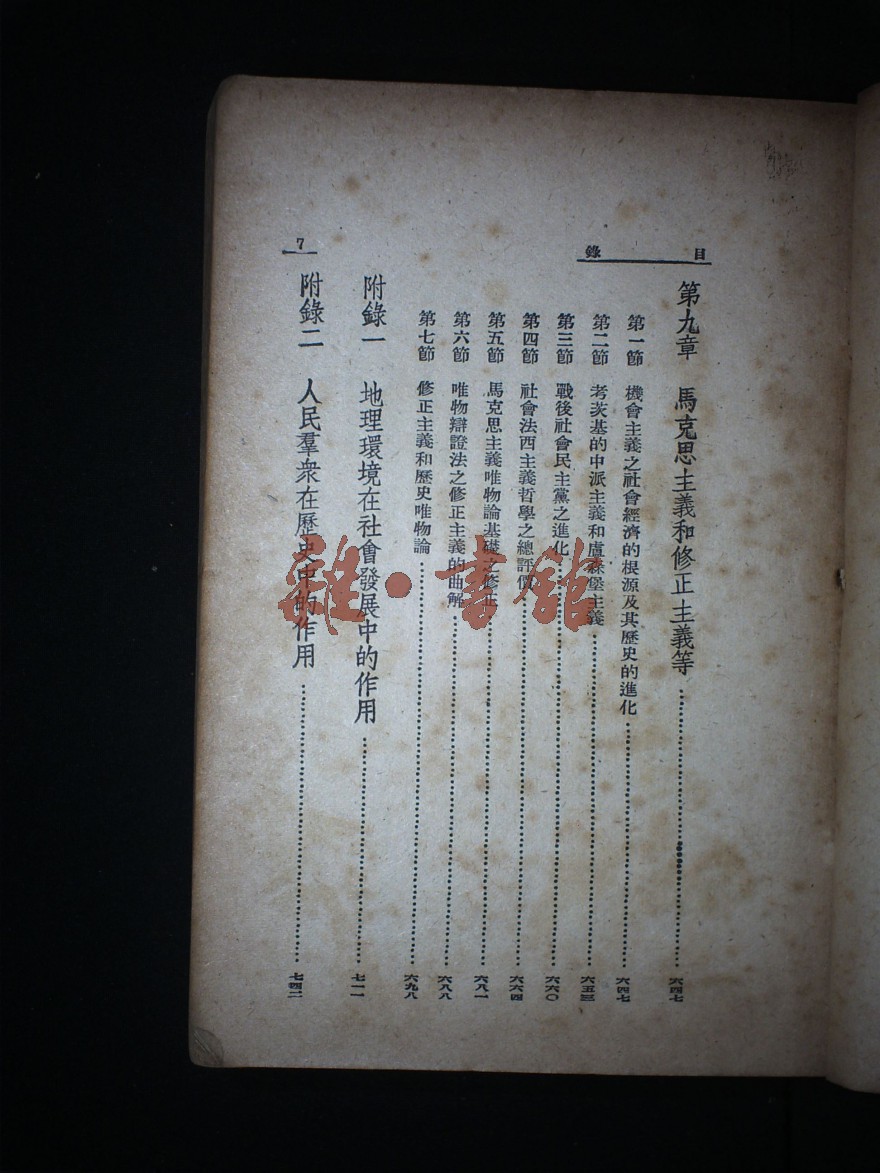 目錄
第九章 馬克思主義和修正主義等……六四七
第一節 機會主義之社會經濟的根源及其歷史的進化……六四七
第二節 考茨基的中派主義和盧森堡主義……六五三
第三節 戰後社會民主黨之進化……六六〇
第四節 社會法西主義哲學之總評價……六六四
第五節 馬克思主義唯物論基礎之修正……六八一
第六節 唯物辯證法之修正主義的曲解……六八八
第七節 修正主義和歷史唯物論……六九八
附錄一 地理環境在社會發展中的作用……七一一
附錄二 人民羣衆在歷史中的作用……七四二
7
雜·書館